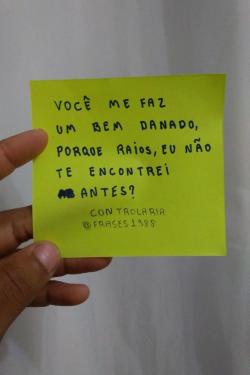 VOCÊ ME FAZ
UM BEM DANADO,
PORQUE RAIOS, EU NÃO
TE ENCONTREI
ANTES?
CONTROLARIA
@FRASES1988